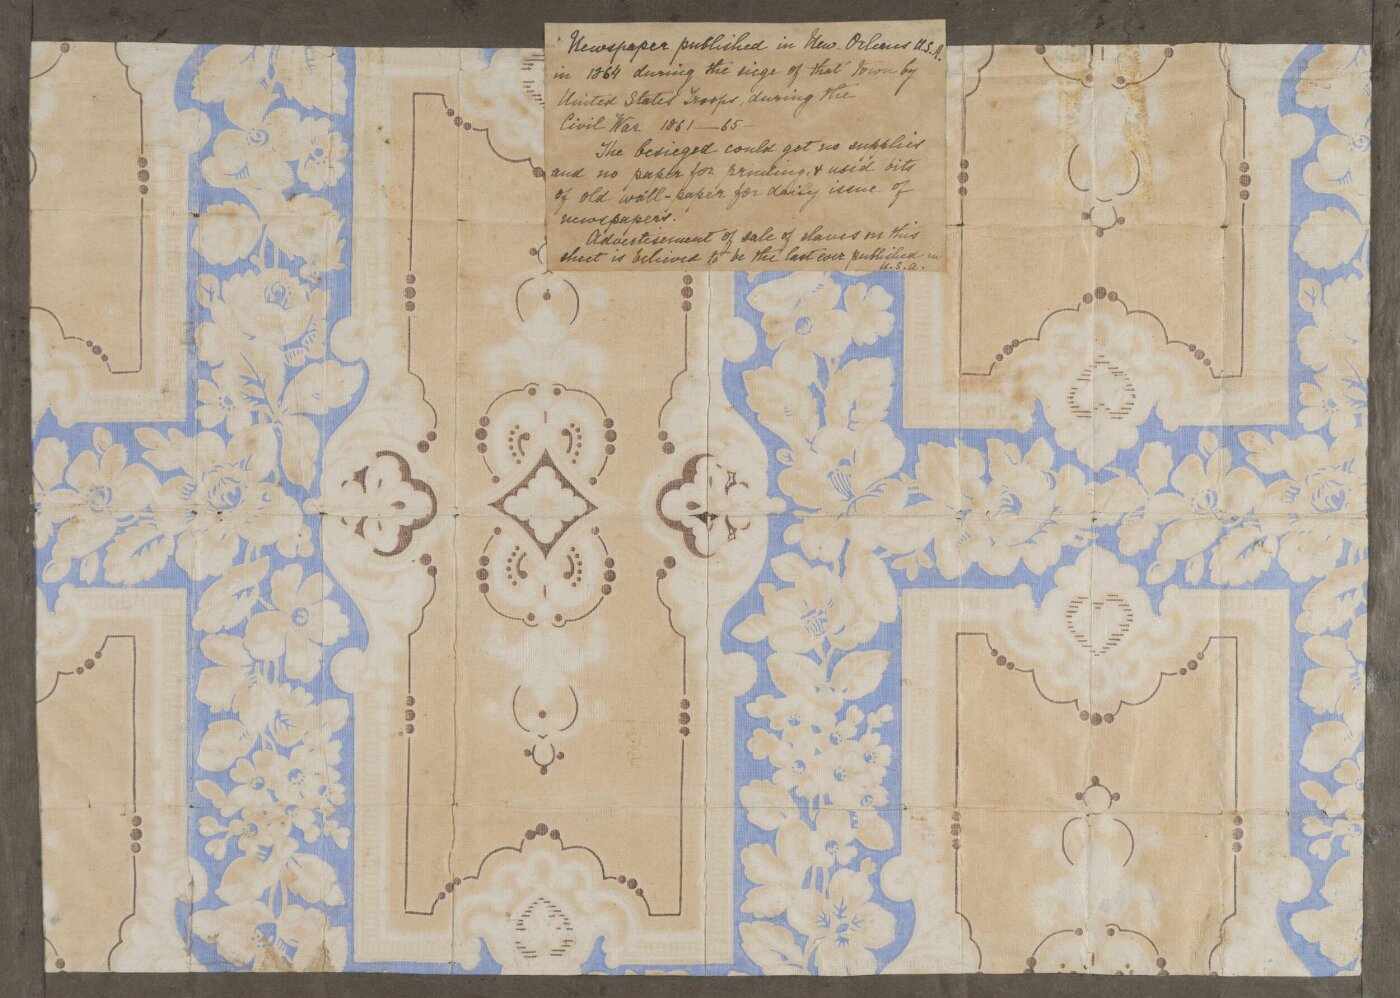 Newspaper published in New-Orleans U.S.A.
in 1864 during the siege of that Town by
United States Troops, during the
Civil War 1861—65-
The besieged could get no supplies
and no paper for printing, & used bits
of old wall-paper for daily issue of
newspapers.
Advertisement of sale of slaves on this
sheet is believed to be the last ever published in
U.S.A.